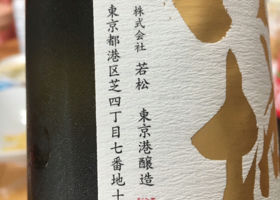 株式会社 若松 東京港醸造
東京都港区芝四丁目七番地十